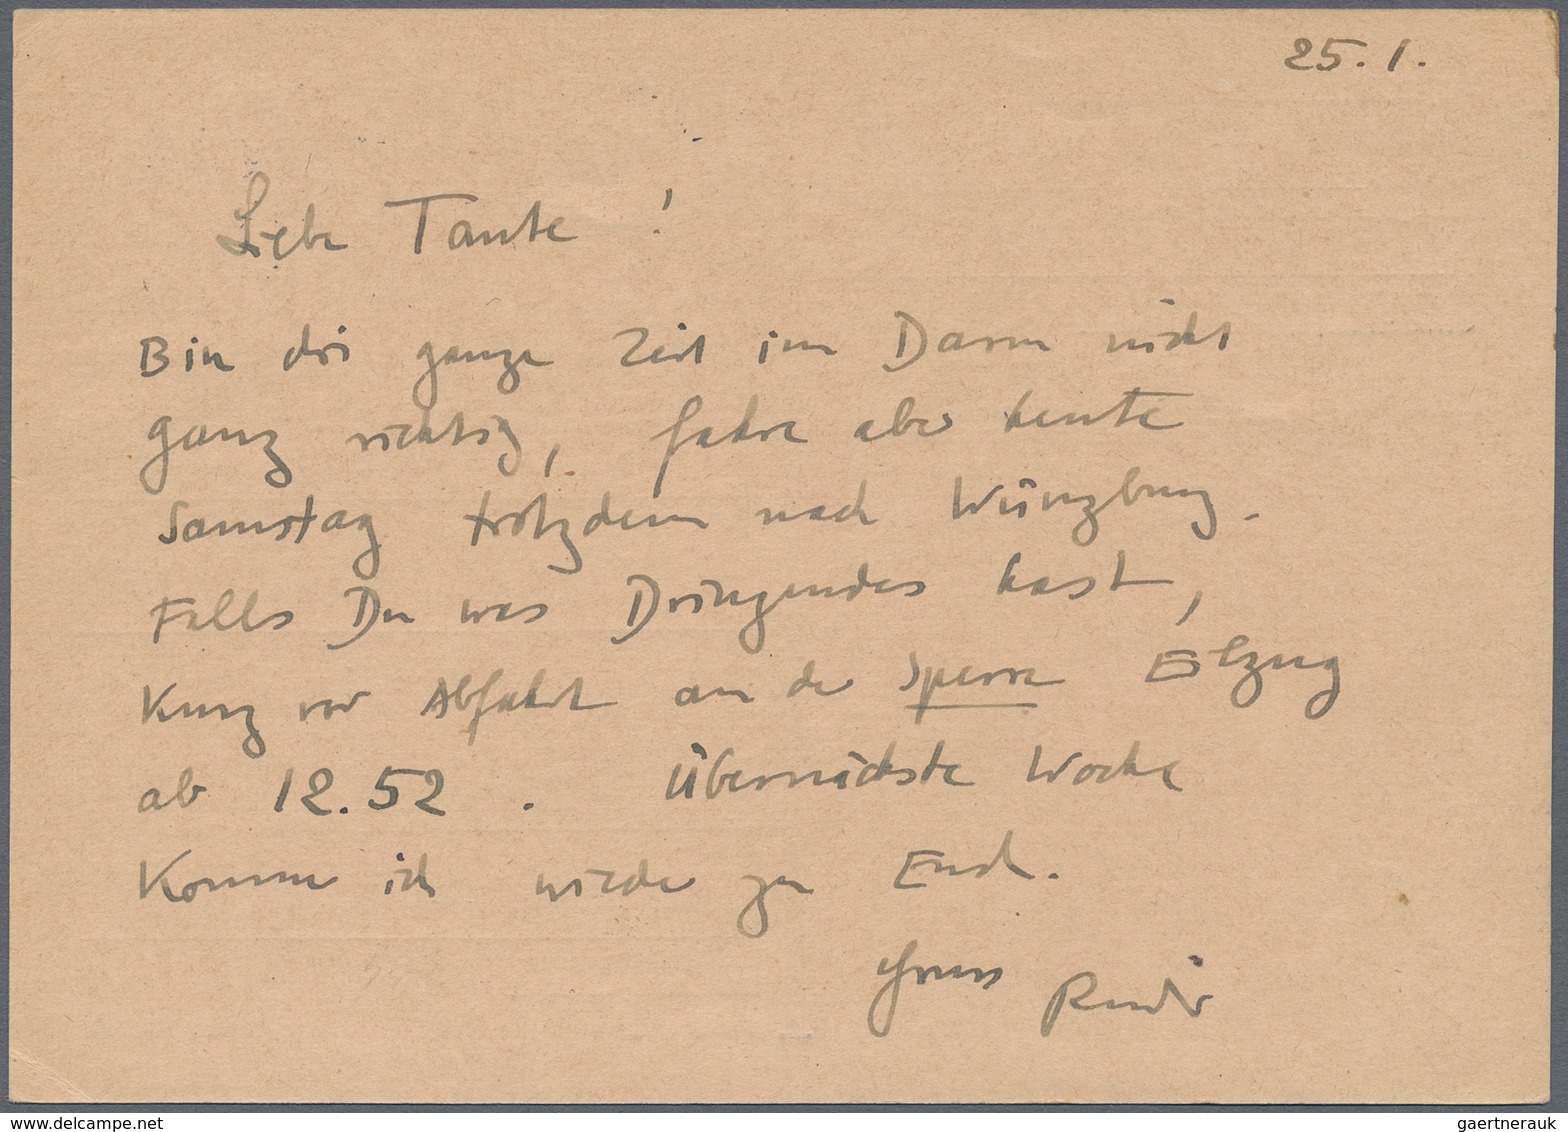 25. 1.
Liebe Tante !
Bin die ganze Zeit im Darm nicht
ganz richtig, fahre aber heute
Samstag trotzdem nach Würzburg.
Falls Du was Dringendes hast,
Kurz vor Abfahrt an der Sperre Eilzug
ab 12.52 . Übernächste Woche
Komme ich wieder zu Euch.
Gruss Rudi
gaertnerauk@delcampe.net